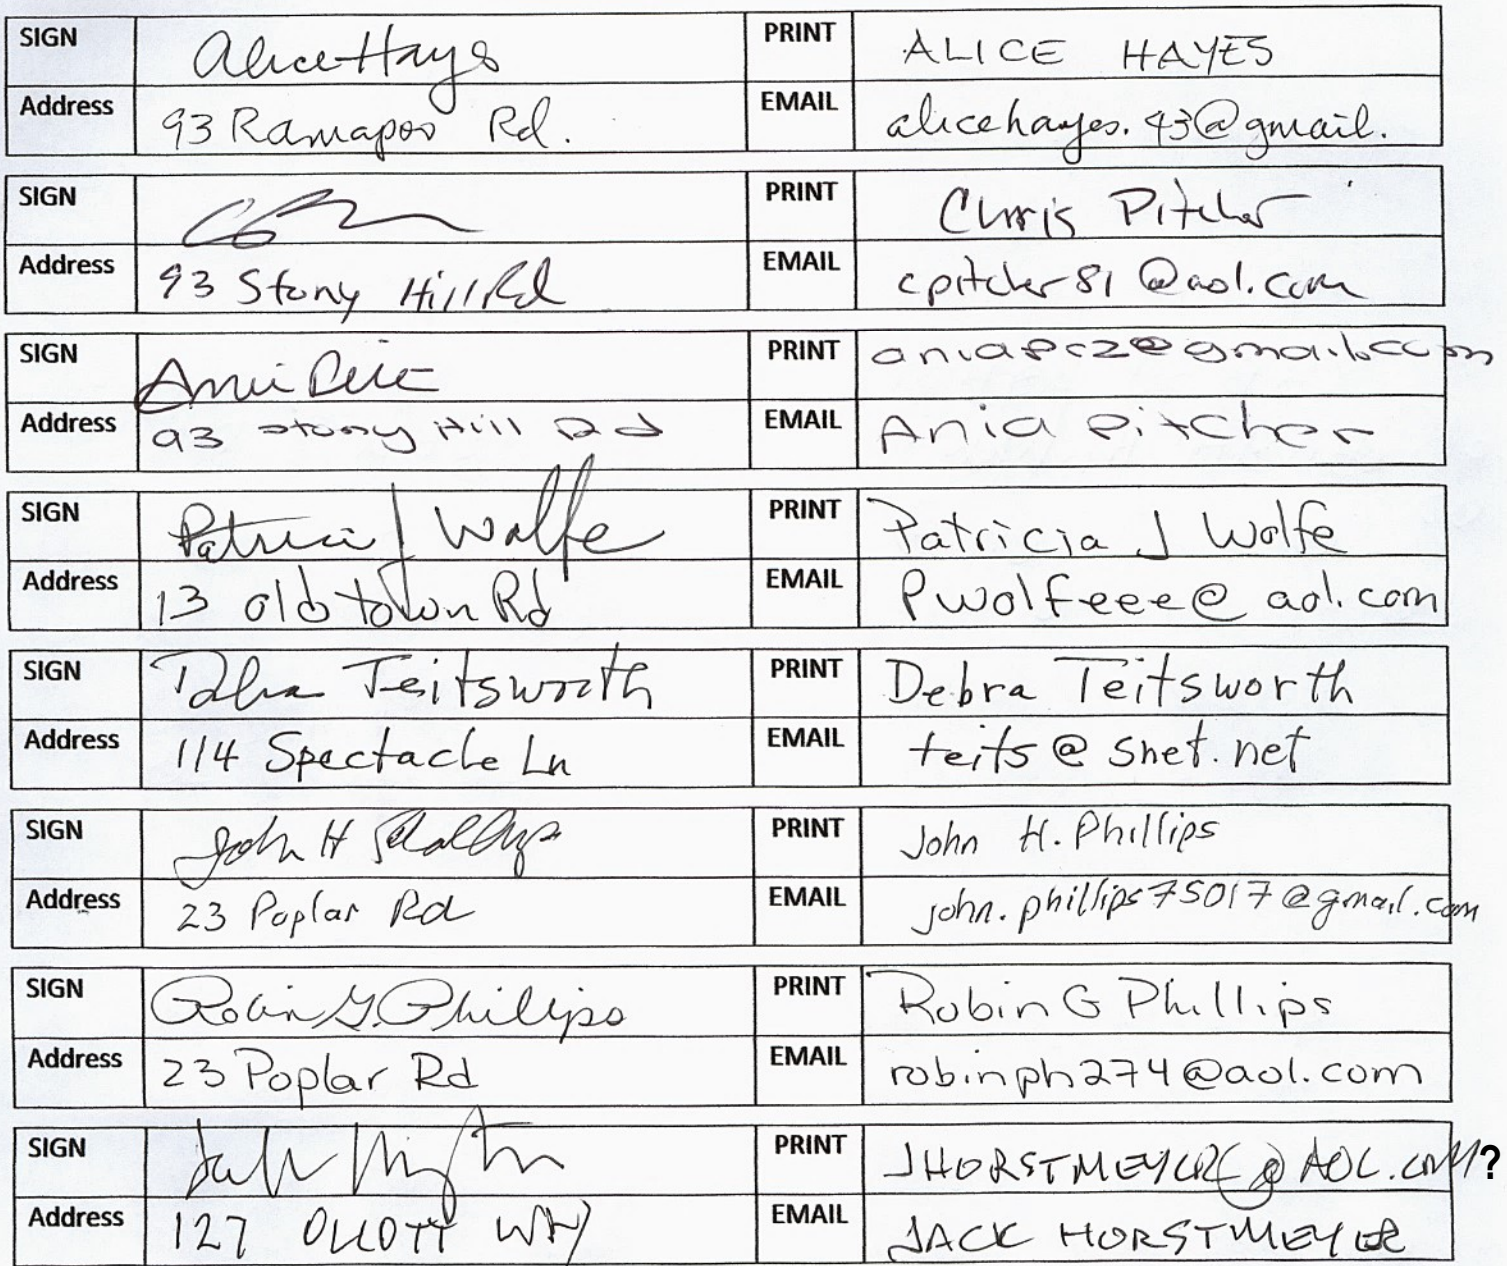 SIGN Alice Hayes PRINT ALICE HAYES
Address 93 Ramapoo Rd. EMAIL alicehayes.43@gmail.
SIGN PRINT Chris Pitcher
Address 93 Stony Hill Rd EMAIL cpitcher81@aol.com
SIGN PRINT aniapcz@gmail.com
Address 93 Stony Hill Rd EMAIL Ania Pitcher
SIGN Patricia J Wolfe PRINT Patricia J Wolfe
Address 13 old town Rd EMAIL Pwolfeee@aol.com
SIGN Debra Teitsworth PRINT Debra Teitsworth
Address 114 Spectacle Ln EMAIL teits@snet.net
SIGN John H Phillips PRINT John H. Phillips
Address 23 Poplar Rd EMAIL john.phillips75017@gmail.com
SIGN Robin G. Phillips PRINT Robin G Phillips
Address 23 Poplar Rd EMAIL robinph274@aol.com
SIGN PRINT JHORSTMEYER@AOL.COM?
Address 127 WAY EMAIL JACK HORSTMEYER